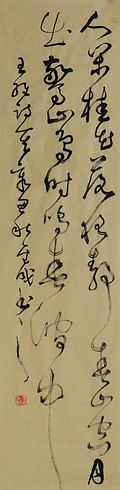 人閒桂花落夜静春山空月
出驚山鳥時鳴春澗中
王維詩